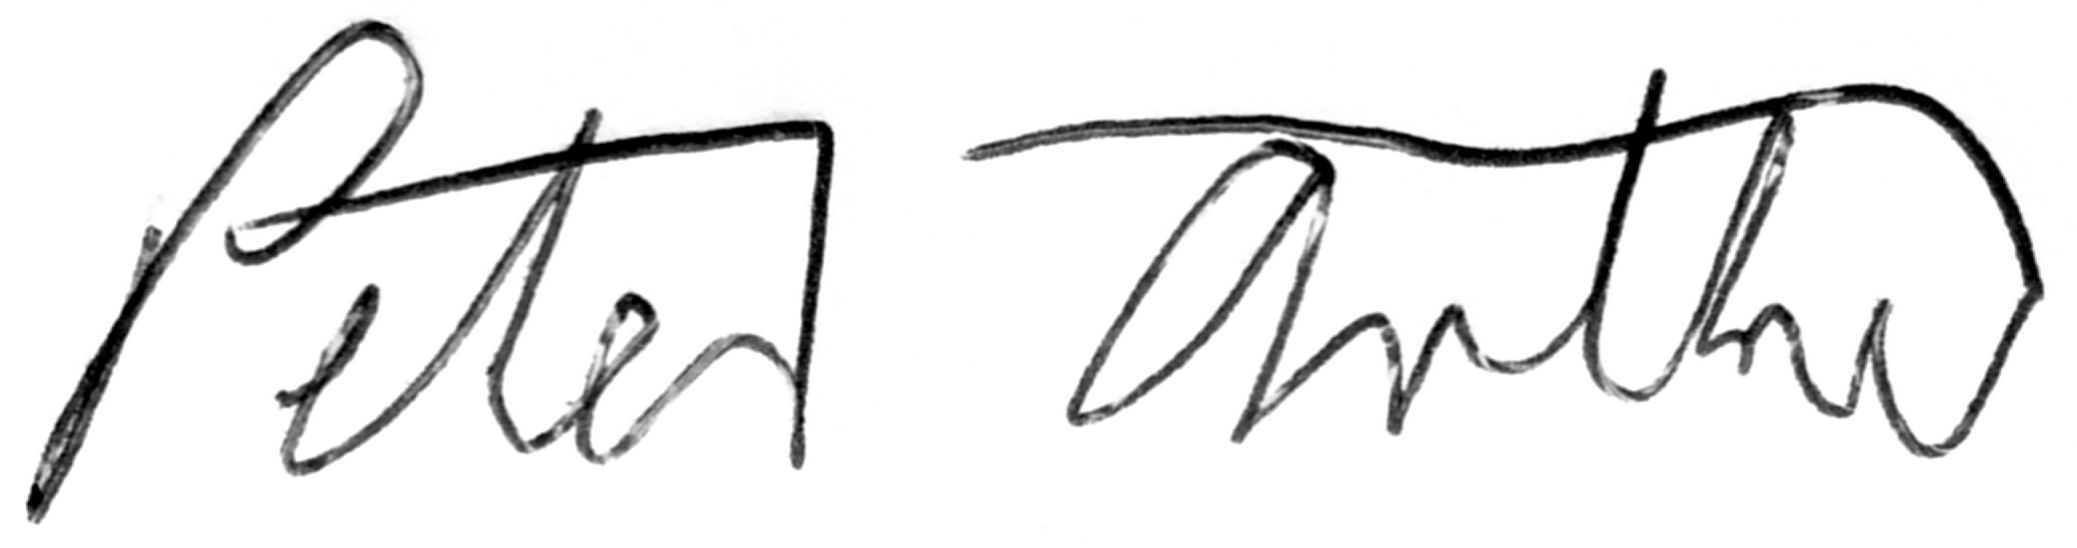 Peter Arthur